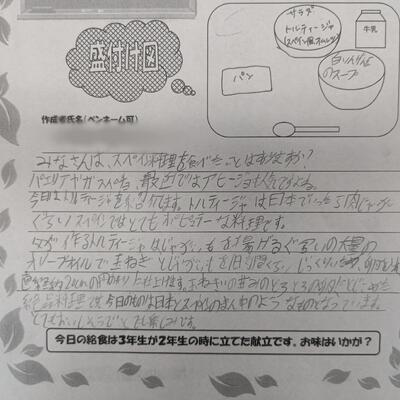 サラダ
トルティージャ
(スペイン風オムレツ)
牛乳
パン
白いんげん
のスープ
盛付け図
作成者氏名(ペンネーム可)
みなさんは、スペイン料理を食べたことはありますか?
パエリアやガスパチョ、最近ではアヒージョも人気ですよね。
今日はトルティージャを紹介します。トルティージャは日本でいったら肉じゃが
ぐらい、スペインではとてもポピュラーな料理です。
作るトルティージャはじゃがいもを揚げるぐらいの大量の
オリーブオイルで玉ねぎとじゃがいもを
直径約24cmの 仕上げます。玉ねぎの甘みの
絶品料理 今日のものは日本とスペインのまん中のようなものとなっています。
とてもおいしいのでとても楽しみです。
今日の給食は3年生が2年生の時に立てた献立です。お味はいかが?